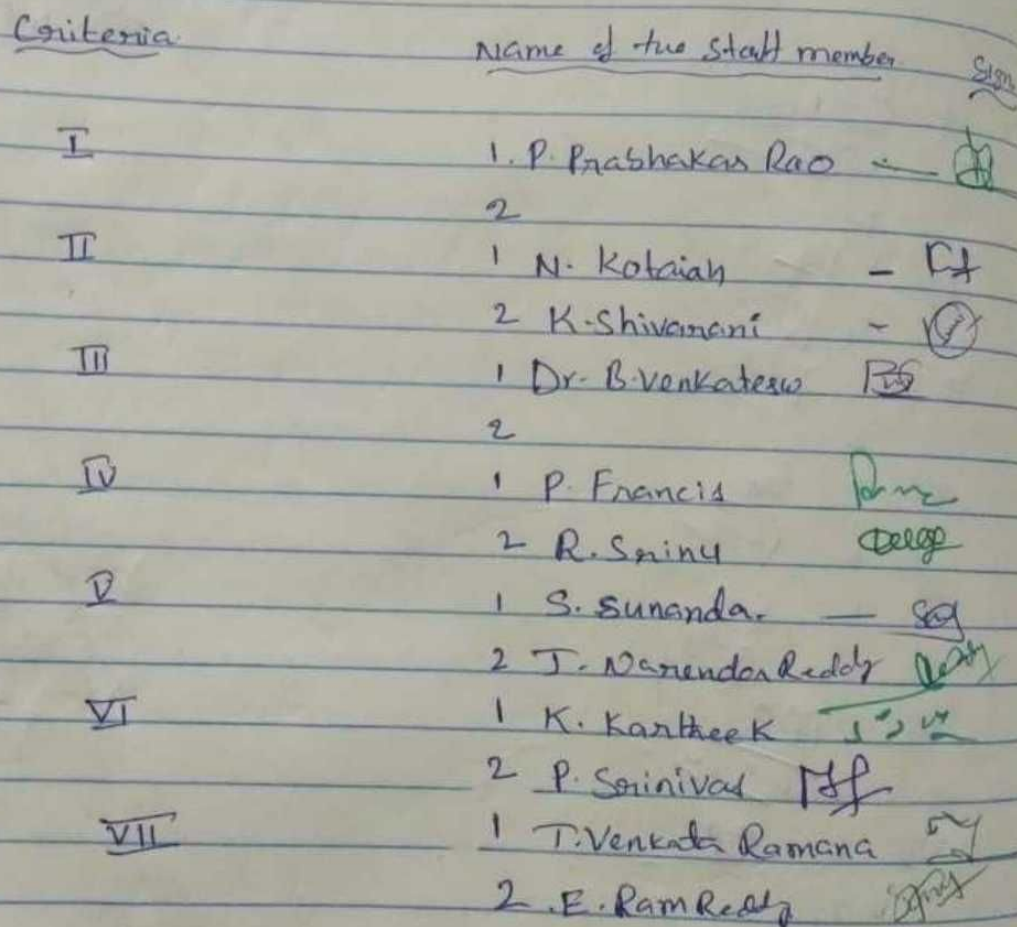 Criteria Name of the Staff member Sign
I 1. P. Prabhakar Rao -
2
II 1 N. Kotaiah -
2 K. Shivarani -
III 1 Dr. B. Venkatesw
2
IV 1 P. Francis
2 R. Srinu
V 1 S. Sunanda. -
2 J. Narendar Reddy
VI 1 K. Kartheek
2 P. Srinivas
VII 1 T. Venkata Ramana
2 . E. Ram Reddy